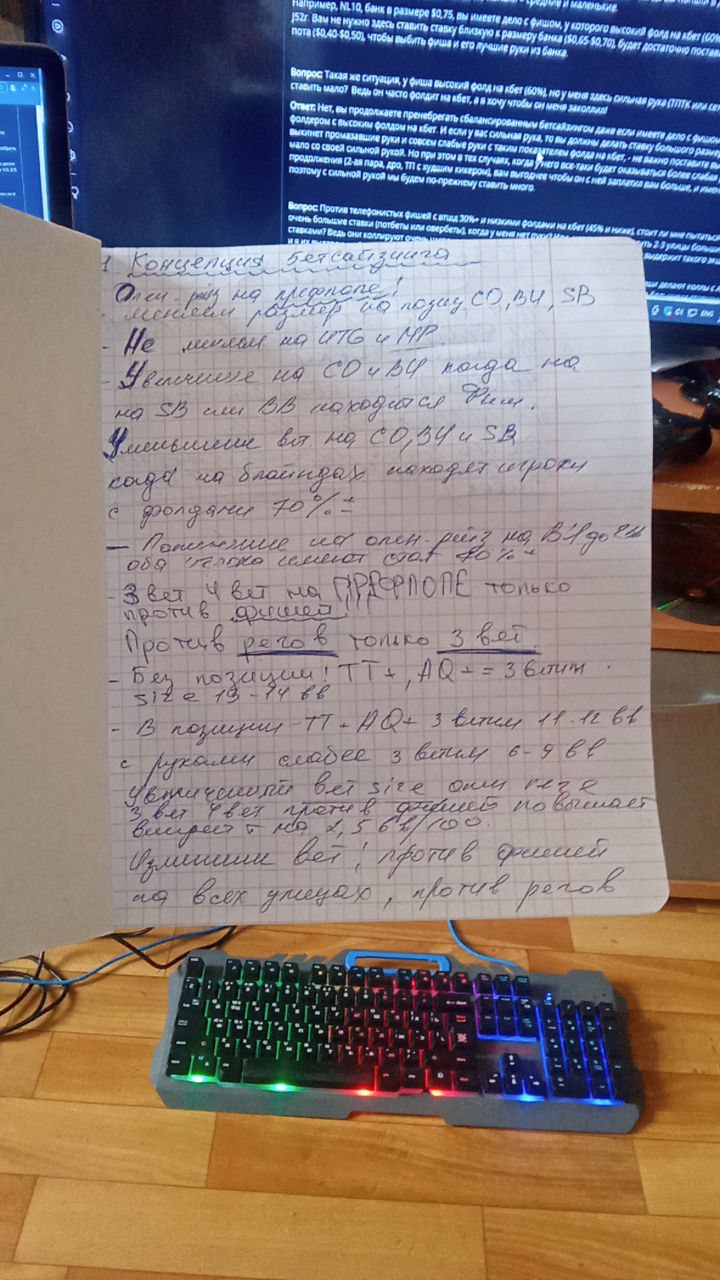 Например, NL10, банк в размере $0,75, вы имеете дело с фишом, у которого высокий фолд на кбет (60%
J52r. Вам не нужно здесь ставить ставку близкую к размеру банка ($0,65-$0,70), будет достаточно постав
пота ($0,40-$0,50), чтобы выбить фиша и его лучшие руки из банка.
Вопрос: Такая же ситуация, у фиша высокий фолд на кбет (60%), но у меня здесь сильная рука (ТПТК или се
ставить мало? Ведь он часто фолдит на кбет, а я хочу чтобы он меня заколлил!
Ответ: Нет, вы продолжаете пренебрегать сбалансированным бетсайзингом даже если имеете дело с фишом
фолдером с высоким фолдом на кбет. И если у вас сильная рука, то вы должны делать ставку большого разм
выкинет промазавшие руки и совсем слабые руки с таким показателем фолда на кбет, - не важно поставите
мало со своей сильной рукой. Но при этом в тех случаях, когда у него все-таки будет оказываться более слаба
продолжения (2-ая пара, дро, ТП с худшим кикером), вам выгоднее чтобы он с ней заплатил вам больше, и
поэтому с сильной рукой мы будем по-прежнему ставить много.
Вопрос: Против телефонистых фишей с втшд 30%+ и низкими фолдами на кбет (45% и ниже), стоит ли мне пытать
очень большие ставки (потбеты или овербеты), когда у меня нет
ставками? Ведь они коллируют очень
ENG
1. Концепция Бетсайзинга
Опен-рейз на префлопе!
- меняем размер на позиц CO, BU, SB
- Не меняем на UTG и MP
- Увеличение на CO и BU когда на
на SB или BB находится Фиш.
Уменьшение bet на CO, BU и SB
когда на блайндах находят игроки
с фолдами 70%±
- на опен-рейз на BU до
оба игрока имеют стил 70%+
- 3 бет 4 бет на ПРЕФЛОПЕ только
против фишей!
Против регов только 3 bet.
- Без позиции! TT+, AQ+ = 3 бетим.
size 13-14 вв
- В позиции - TT+ AQ+ 3 бетим 11-12 вв
с руками слабее 3 бетим 6-9 вв
Увеличенный bet size опен рейз
3 bet 4 bet против фишей повышает
винрейт на 2,5 вв/100.
bet! против фишей
на всех улицах, против регов